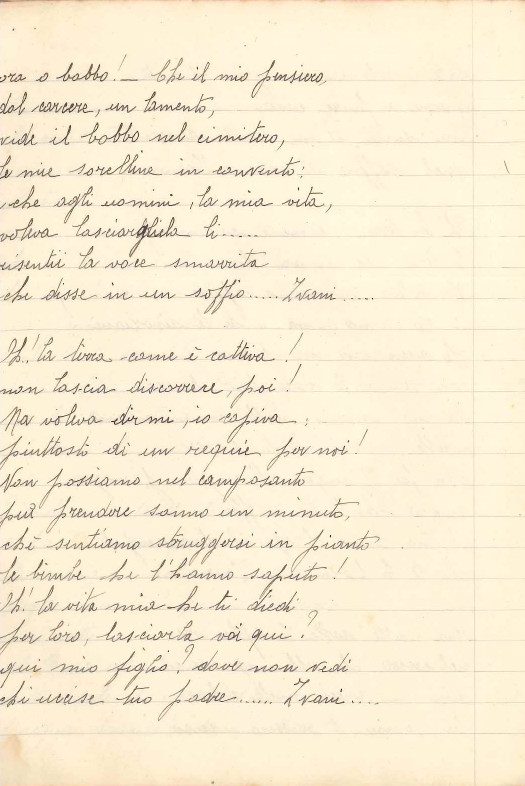 ora o babbo! – Che il mio pensiero,
dal carcere, un lamento,
vide il babbo nel cimitero,
le mie sorelline in convento:
che agli uomini, la mia vita,
voleva lasciargliela lì.....
risentii la voce smarrita
che disse in un soffio..... Zvanì.....
Oh! la terra come è cattiva!
non lascia discorrere, poi!
Ma voleva dirmi, io capiva:
piuttosto dì un requie per noi!
Non possiamo nel camposanto
più prendere sonno un minuto,
chè sentiamo struggersi in pianto
le bimbe che l'hanno saputo!
Oh! la vita mia che ti diedi
per loro, lasciarla vuoi qui?
qui mio figlio? dove non vedi
chi uccise tuo padre...... Zvanì....